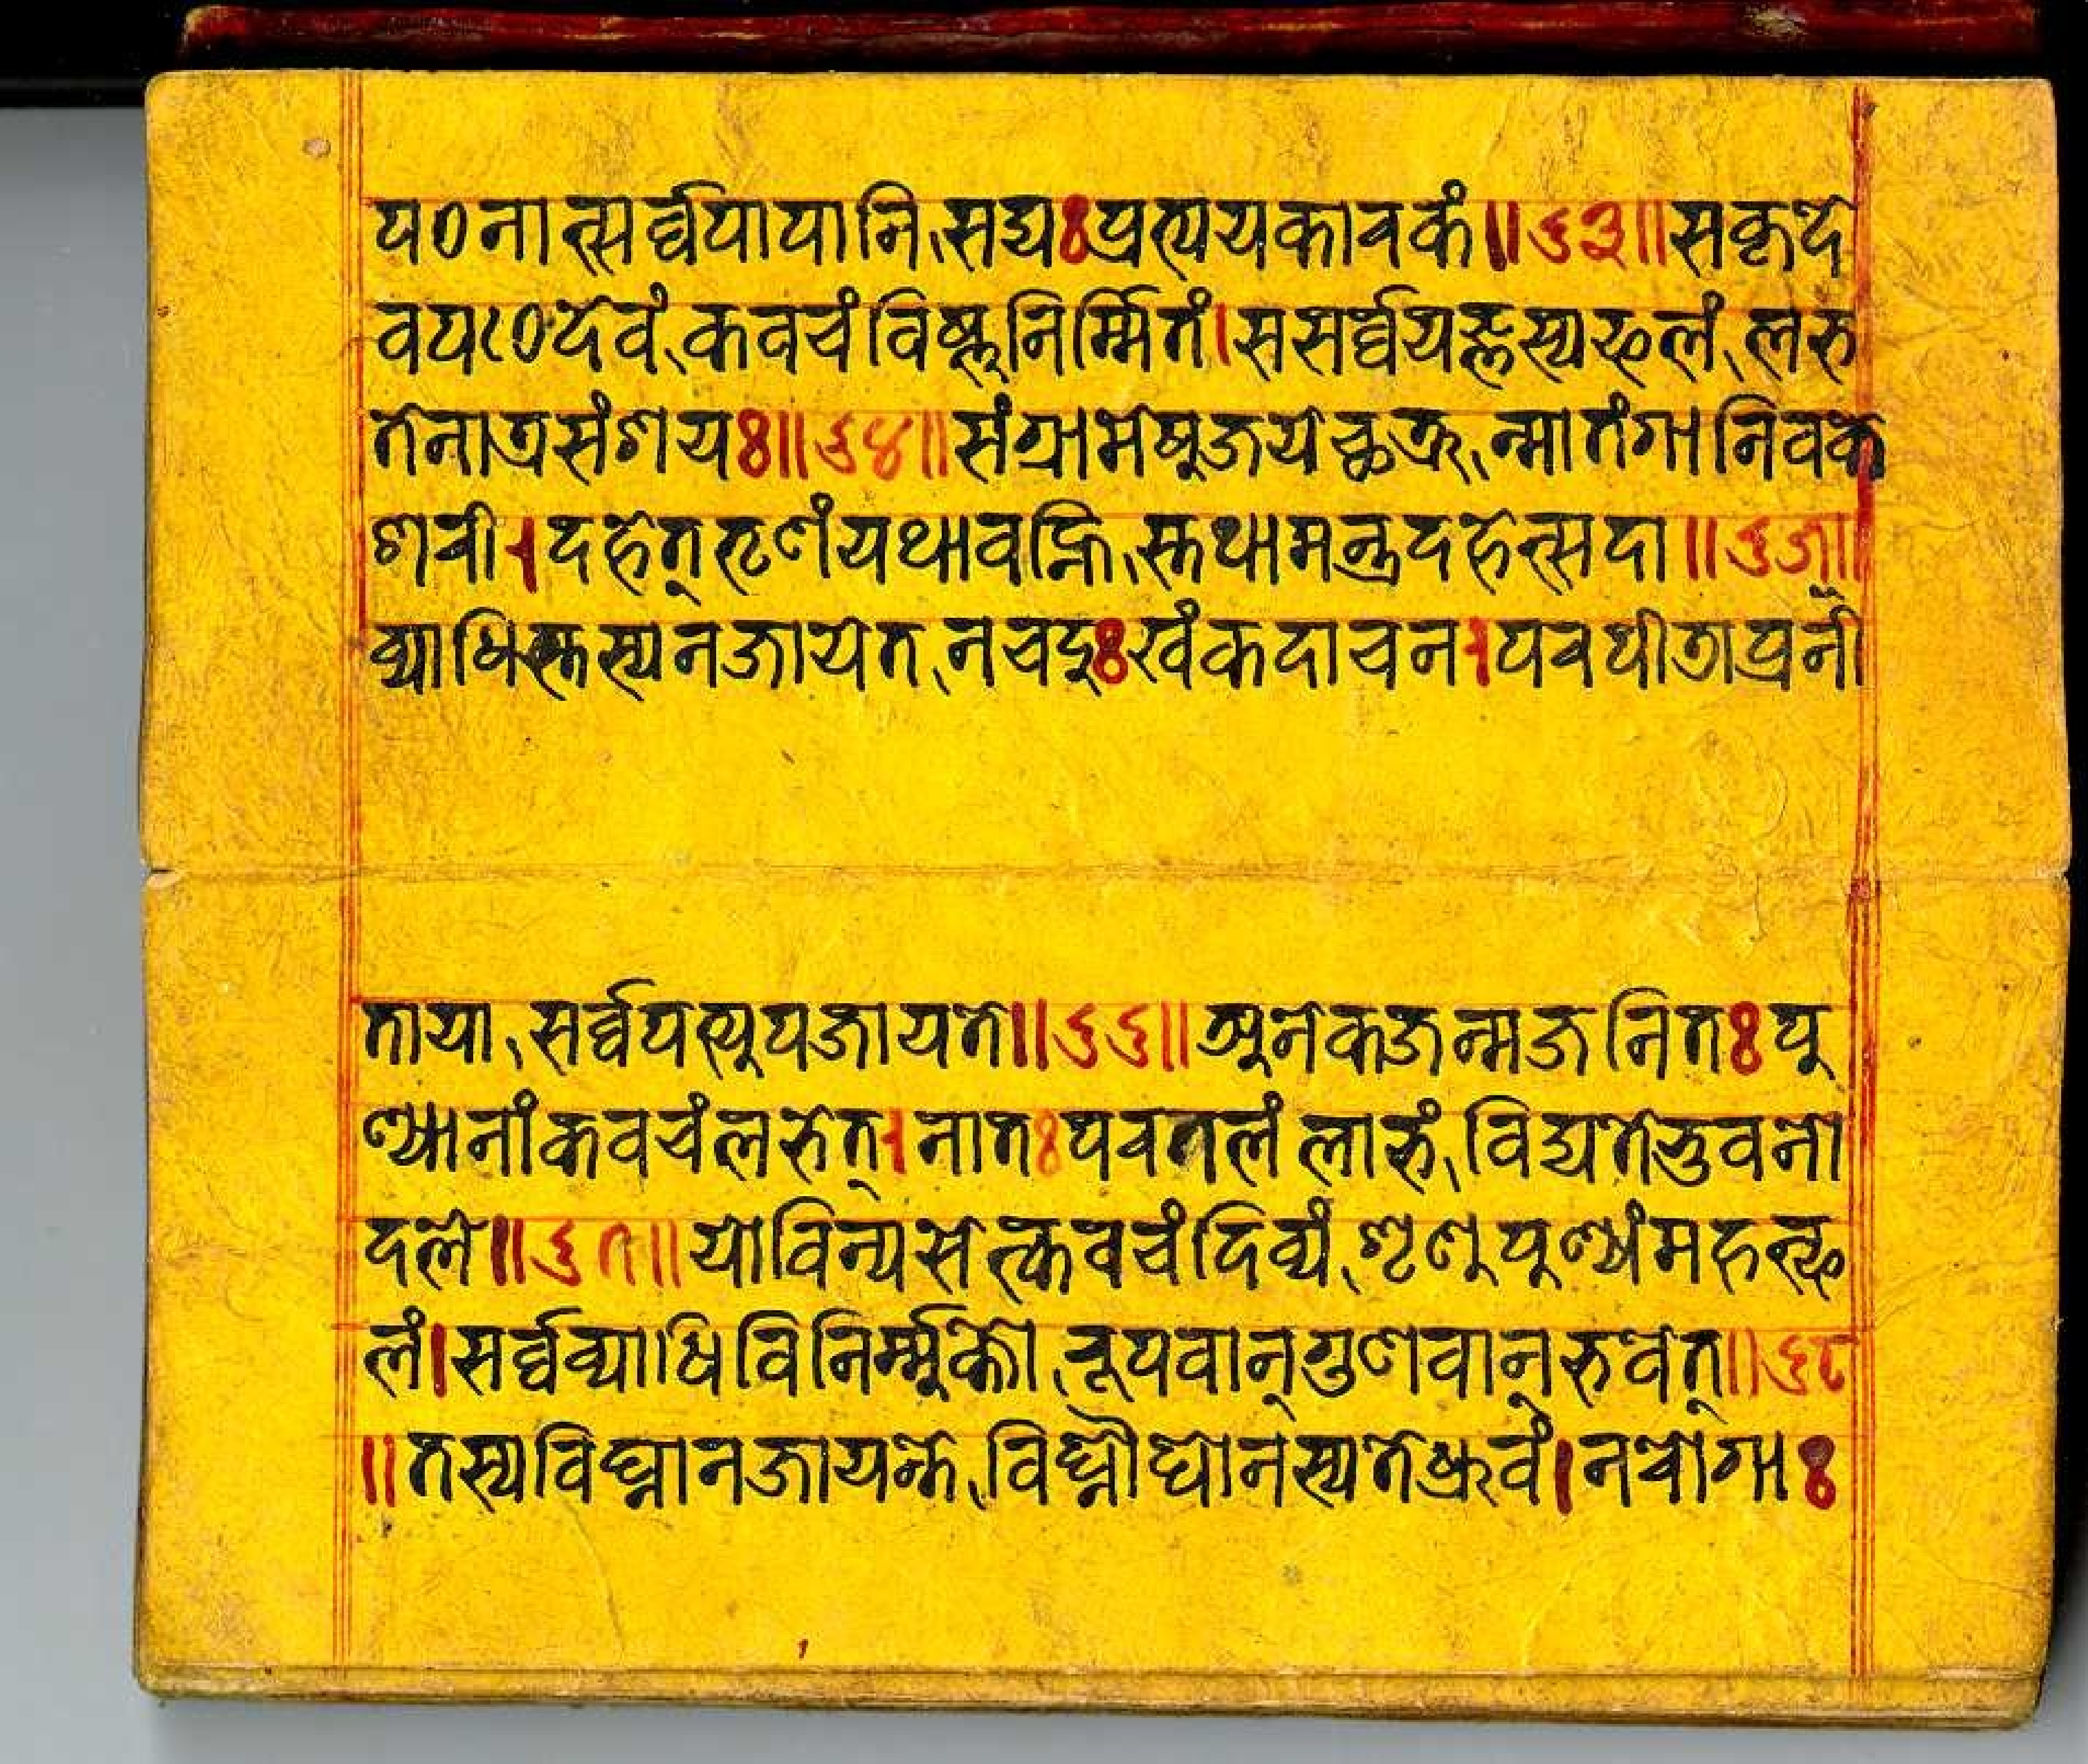 पठनात्सर्व्वपापानि, सद्यः प्रत्ययकारकं॥६३॥सकृदे
वपठेद्देवं, कवचं विष्णुनिर्म्मितं।ससर्व्वयज्ञस्यफलं, लभ
तेनात्रसंशयः॥६४॥संग्रामेषुजयेच्छत्रू, न्मातंगानिवके
शरी।दहेत्तृणंयथावह्नि, स्तथामन्त्रदहेत्सदा॥६५॥
व्याधिस्तस्यनजायेत, नचदुःखंकदाचन।परपीडाप्रनी
ताया, सर्व्वपत्युपजायते॥६६॥अनेकजन्मजनितः पु
ण्यानांकवचंलभेत्।नातः परतलं लाभं, विद्यतेभुवनो
दले॥६७॥योविन्यसेत्कवचंदिव्यं, शृणुपुण्यंमहत्फ
लं।सर्व्वव्याधिविनिर्म्मुक्तो, रूपवान्गुणवान्भवेत्॥६८
॥तस्यविघ्नानजायन्ते, विघ्नौघोनस्यतेध्रुवं।नरोगाः